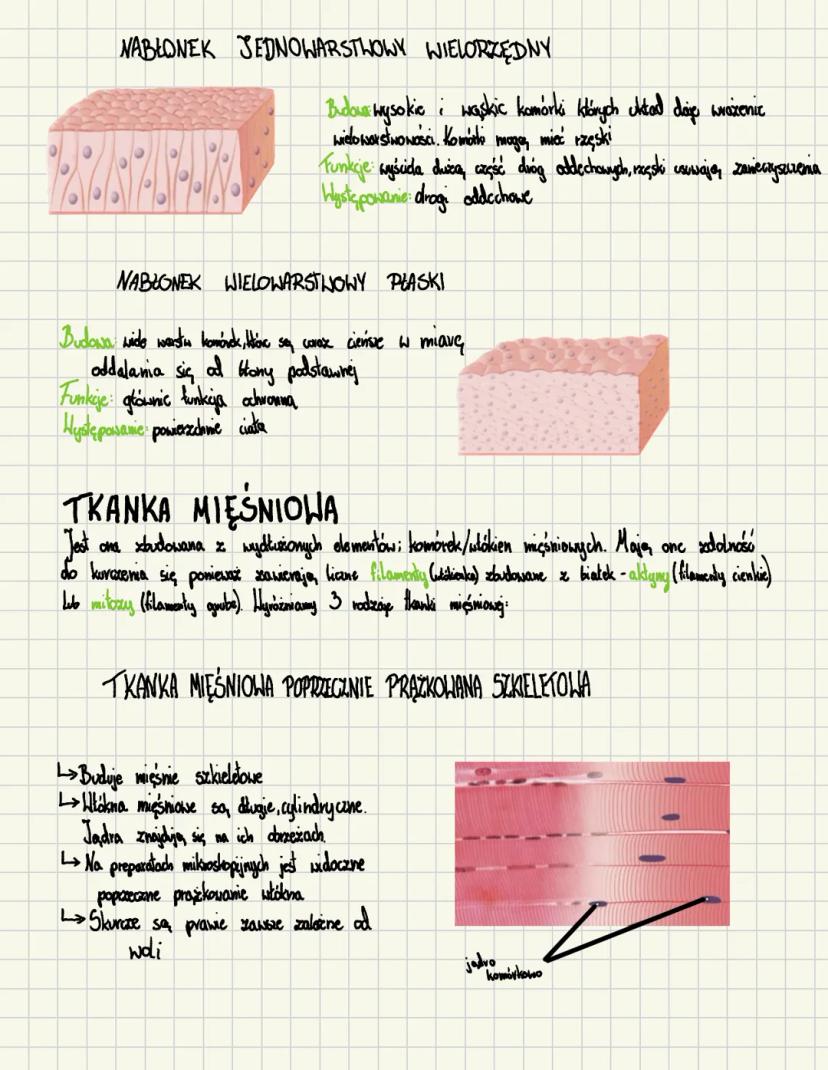 NABŁONEK JEDNOWARSTWOWY WIELORZĘDNY
Budowa: wysokie i wąskie komórki których układ daje wrażenie
wielowarstwowości. Komórki mogą mieć rzęski
Funkcje: wyściela dużą część dróg oddechowych, rzęski usuwają zanieczyszczenia
Występowanie: drogi oddechowe
NABŁONEK WIELOWARSTWOWY PŁASKI
Budowa: wiele warstw komórek, które są coraz cieńsze w miarę
oddalania się od błony podstawnej
Funkcje: głównie funkcja ochronna
Występowanie: powierzchnie ciała
TKANKA MIĘŚNIOWA
Jest ona zbudowana z wydłużonych elementów; komórek/włókien mięśniowych. Mają one zdolność
do kurczenia się ponieważ zawierają liczne filamenty (włókienka) zbudowane z białek - aktyny (filamenty cienkie)
lub miozy (filamenty grube). Wyróżniamy 3 rodzaje tkanki mięśniowej:
TKANKA MIĘŚNIOWA POPRZECZNIE PRĄŻKOWANA SZKIELETOWA
↳ Buduje mięśnie szkieletowe
↳ Włókna mięśniowe są długie, cylindryczne.
Jądra znajdują się na ich obrzeżach.
↳ Na preparatach mikroskopijnych jest widoczne
poprzeczne prążkowanie włókna
↳ Skurcze są prawie zawsze zależne od
woli
jądro
komórkowo